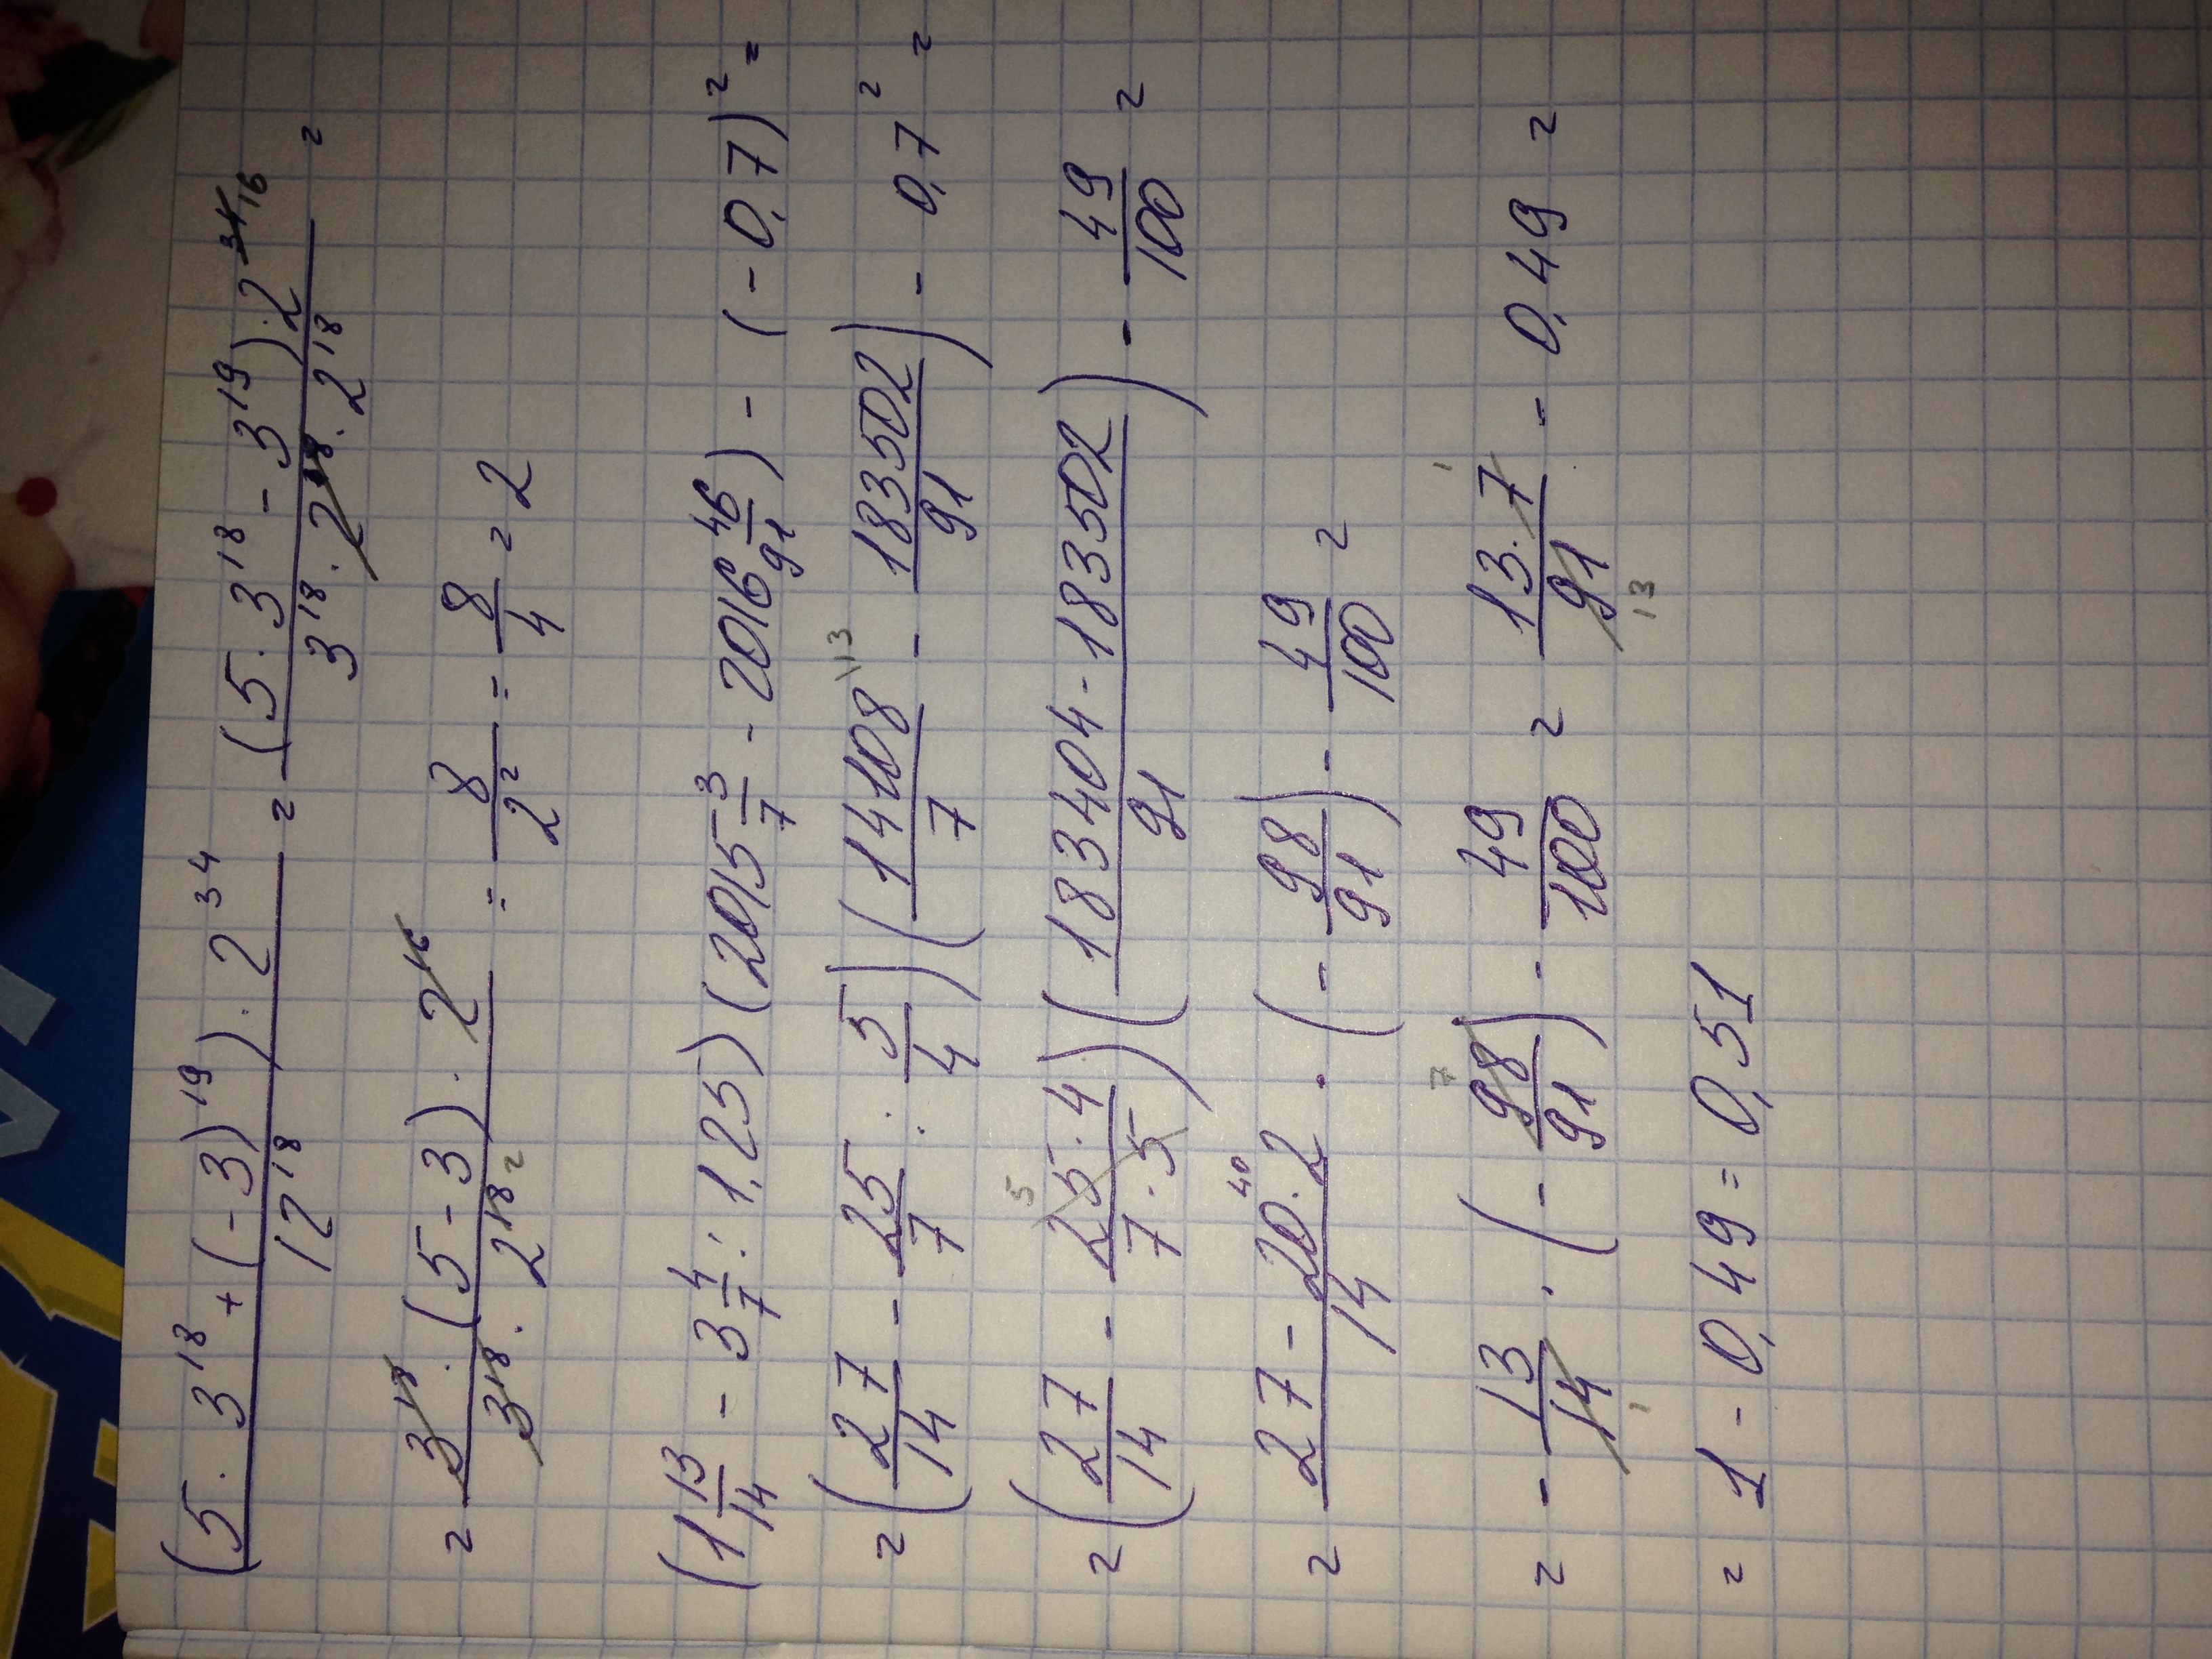 (5 · 3^18 + (-3)^19) · 2^34 / 12^18 = (5 · 3^18 - 3^19) · 2^34 16 / 3^18 · 2^18 · 2^18 =
= 3^18 · (5 - 3) · 2^16 / 3^18 · 2^18 2 = 8 / 2^2 = 8/4 = 2
(1 13/14 - 3 4/7 : 1,25) (2015 3/7 - 2016 46/91) - (-0,7)^2 =
= (27/14 - 25/7 : 5/4) (14108/7 \13 - 183502/91) - 0,7^2 =
= (27/14 - 25 5 · 4 / 7 · 5) (183404 - 183502 / 91) - 49/100 =
= 27 - 20 · 2 40 / 14 · (- 98/91) - 49/100 =
= - 13/14 1 · (- 98 7/91) - 49/100 = 13 · 7 1 / 91 13 - 0,49 =
= 1 - 0,49 = 0,51